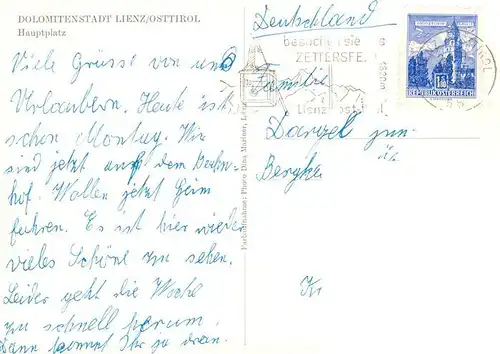 DOLOMITENSTADT LIENZ/OSTTIROL
Hauptplatz
Viele Grüsse von uns
Urlaubern. Heute ist
schon Montag. Wir
sind jetzt auf dem Bahn-
hof. Wollen jetzt heim
fahren. Es ist hier wieder
vieles Schöne zu sehen.
Leider geht die Woche
zu schnell herum.
Dann kommt Ihr zu dran.
Farbaufnahme: Photo Dina Mariner, Lienz
Deutschland
besuchen sie
ZETTERSFE
Lienz Ost
REPUBLIK ÖSTERREICH
Familie
Dargel jun.
Bergke
Kr